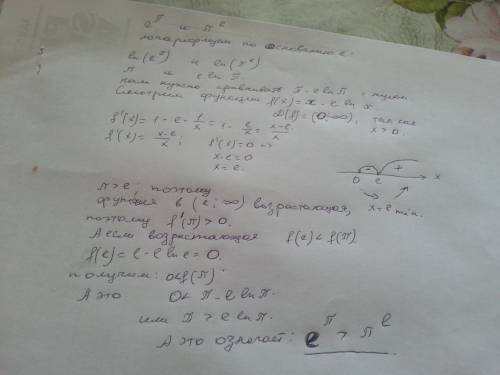 e^π и π^e
логарифмируем по основанию e:
ln(e^π) и ln(π^e)
π и e ln π
нам нужно сравнивать π - e ln π с нулём.
Смотрим функцию f(x) = x - e ln x
f'(x) = 1 - e · 1/x = 1 - e/x = (x-e)/x
D(f) = (0; ∞), так как x > 0.
f'(x) = (x-e)/x; f'(x) = 0 =>
x - e = 0
x = e.
- + 0 e x
x = e min.
π > e; поэтому
функция в (e; ∞) возрастающая,
поэтому f'(π) > 0.
А если возрастающая f(e) < f(π)
f(e) = e - e ln e = 0.
получим: 0 < f(π)
А это 0 < π - e ln π.
или π > e ln π.
А это означает: e^π > π^e.